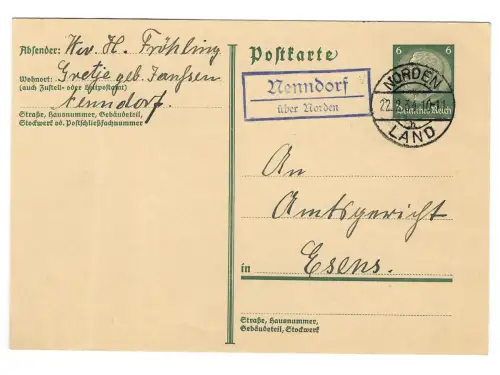 Absender: Ww. H. Fröhling
Wohnort: Gretje geb. Janssen
(auch Zustell- oder Leitpostamt)
Nenndorf.
Straße, Hausnummer, Gebäudeteil,
Stockwerk od. Postschließfachnummer
Postkarte
Nenndorf
über Norden
6 6
Deutsches Reich
NORDEN
22. 34.10-11
LAND
An
Amtsgericht
in Esens.
Straße, Hausnummer,
Gebäudeteil, Stockwerk